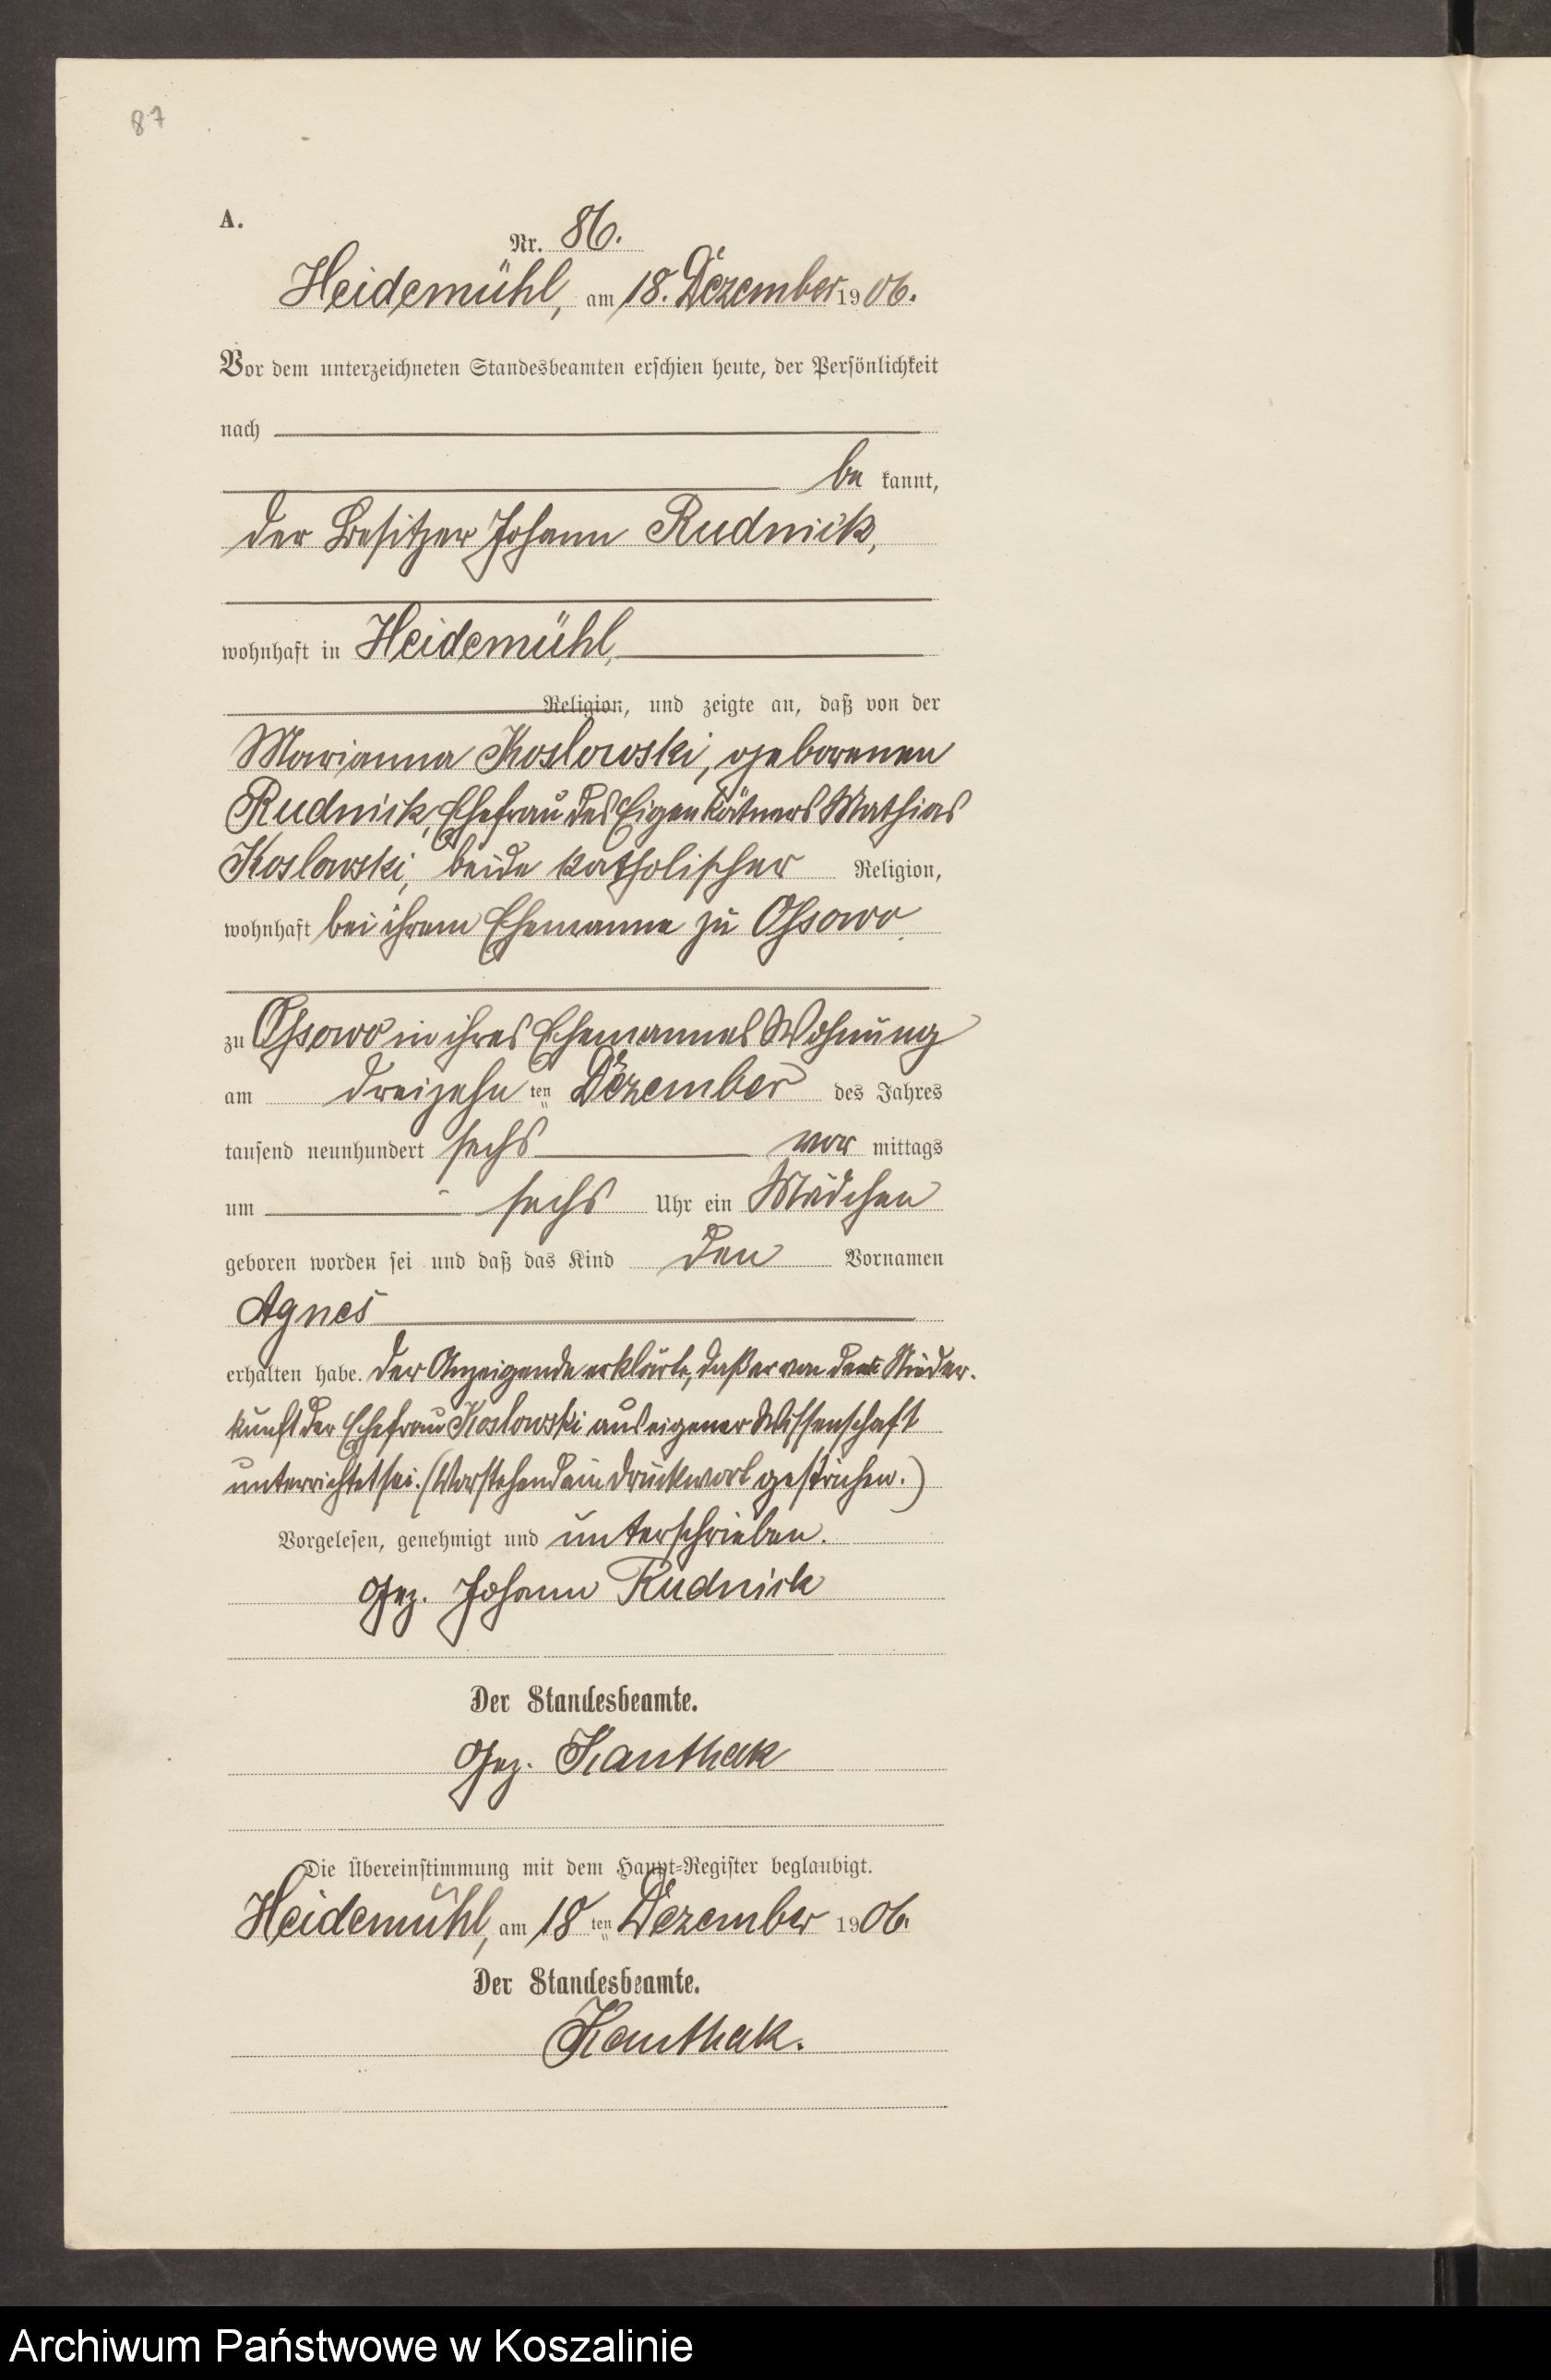 87
A.
Nr. 86.
Heidemühl, am 18. Dezember 1906.
Vor dem unterzeichneten Standesbeamten erschien heute, der Persönlichkeit
nach
be kannt,
der Besitzer Johann Rudnick,
wohnhaft in Heidemühl,
Religion, und zeigte an, daß von der
Marianna Koslowski, geborenen
Rudnick, Ehefrau des Eigenkätners Mathias
Koslowski, beide katholischer Religion,
wohnhaft bei ihrem Ehemanne zu Ossowo
zu Ossowo in ihres Ehemannes Wohnung
am dreizehn ten Dezember des Jahres
tausend neunhundert sechs vor mittags
um sechs Uhr ein Mädchen
geboren worden sei und daß das Kind den Vornamen
Agnes
erhalten habe. Der Anzeigende erklärte, daß er von der Nieder-
kunft der Ehefrau Koslowski aus eigener Wissenschaft
unterrichtet sei. (Vorstehend ein Druckwort gestrichen.)
Vorgelesen, genehmigt und unterschrieben.
Gez. Johann Rudnick
Der Standesbeamte.
Gez. Kanthak
Die Übereinstimmung mit dem Haupt-Register beglaubigt.
Heidemühl, am 18 ten Dezember 1906.
Der Standesbeamte.
Kanthak.
Archiwum Państwowe w Koszalinie